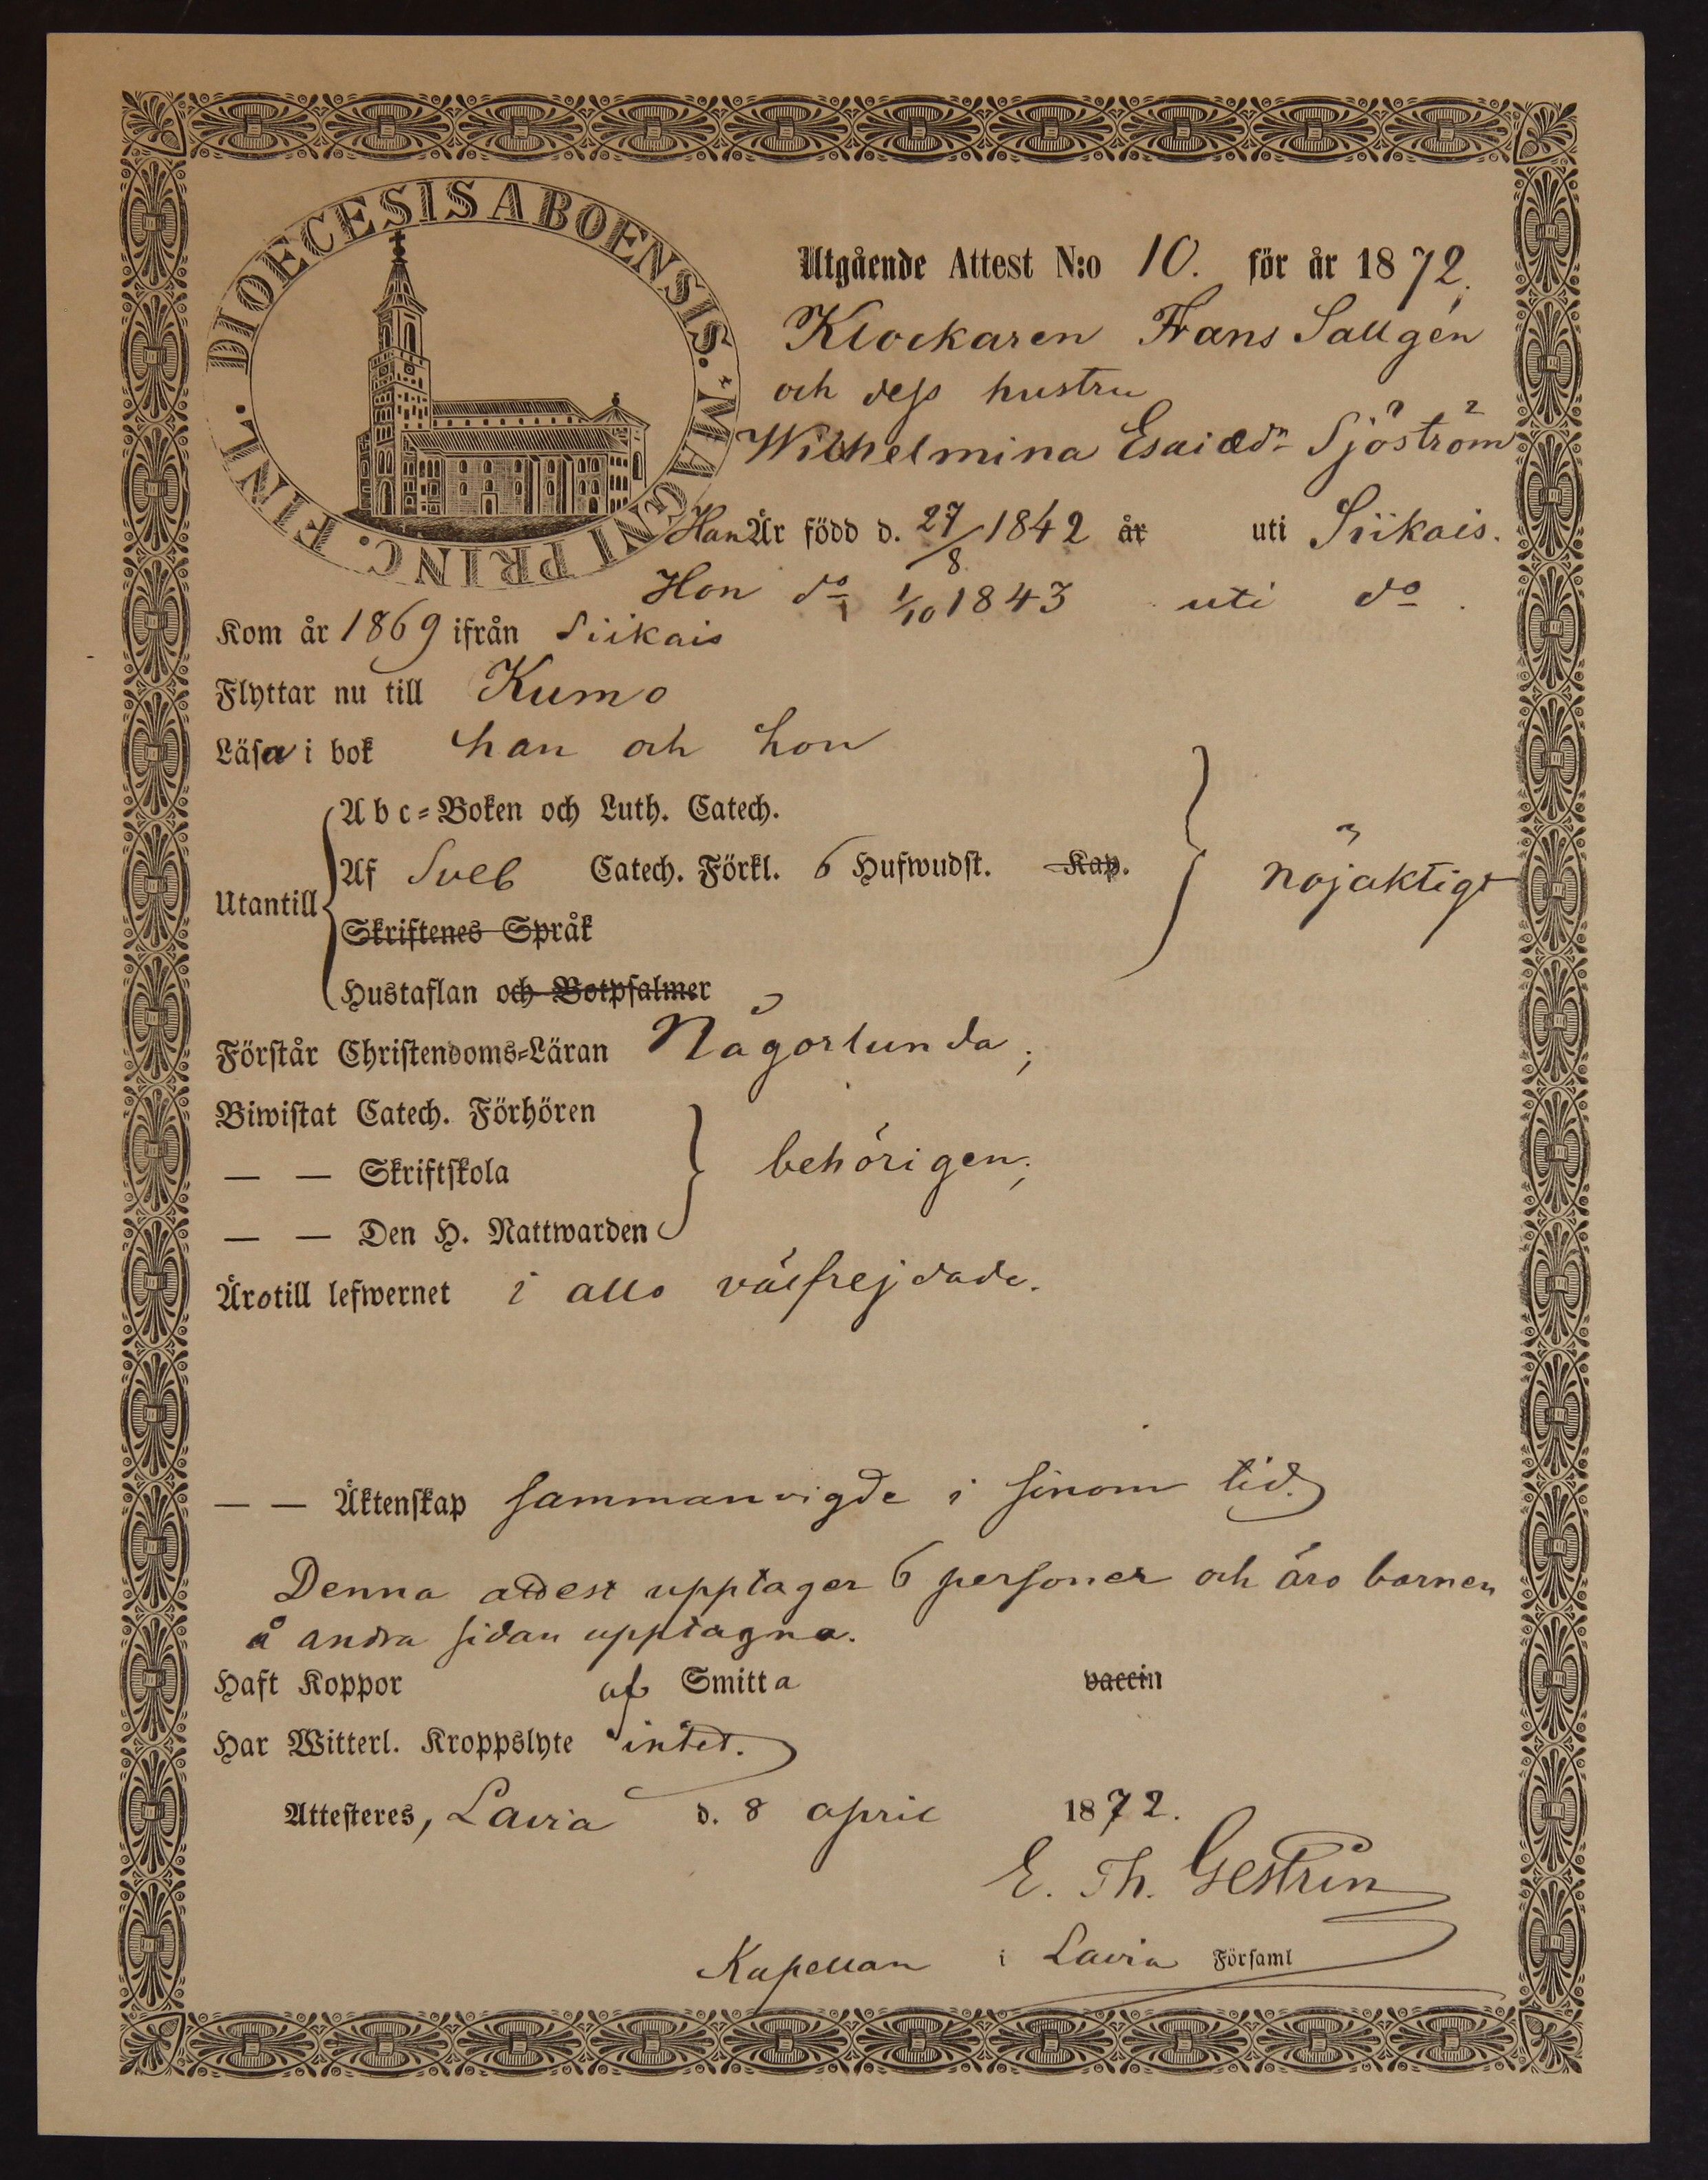 DIOECESIS ABOENSIS. MAGNI PRINC. FINL.
Utgående Attest N:o 10. för år 1872.
Klockaren Frans Sallgén
och dess hustru
Wilhelmina Esaiædr Sjöström
Han Är född d. 27/8 1842 år uti Siikais.
Hon do 1/10 1843 uti do.
Kom år 1869 ifrån Siikais
Flyttar nu till Kumo
Läsa i bok han och hon
Abc=Boken och Luth. Catech.
Utantill Af Sveb Catech. Förkl. 6 Hufwudst. Kap. nöjaktigt
Skriftenes Språk
Hustaflan och Botpsalmer
Förstår Christendoms=Läran Någorlunda;
Biwistat Catech. Förhören
— — Skriftskola behörigen;
— — Den H. Nattwarden
Äro till lefwernet i allo välfrejdade.
— — Äktenskap sammanvigde i sinom tid.
Denna attest upptager 6 personer och äro barnen
å andra sidan upptagna.
Haft Koppor af Smitta vaccin
Har Witterl. Kroppslyte intet.
Attesteres, Lavia d. 8 april 1872.
E. Th. Gestrin
Kapellan i Lavia Församl